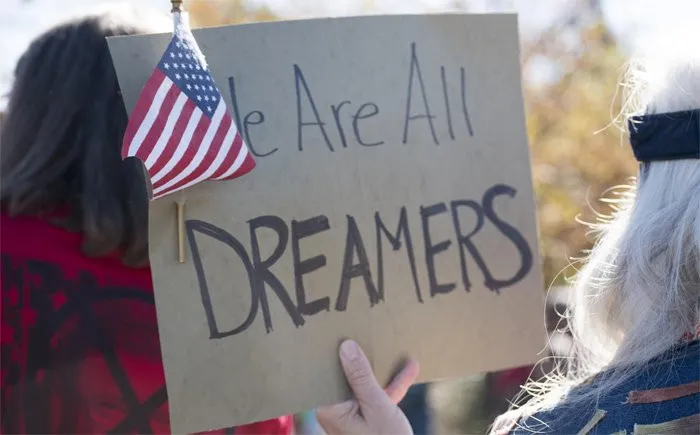 We Are All
DREAMERS